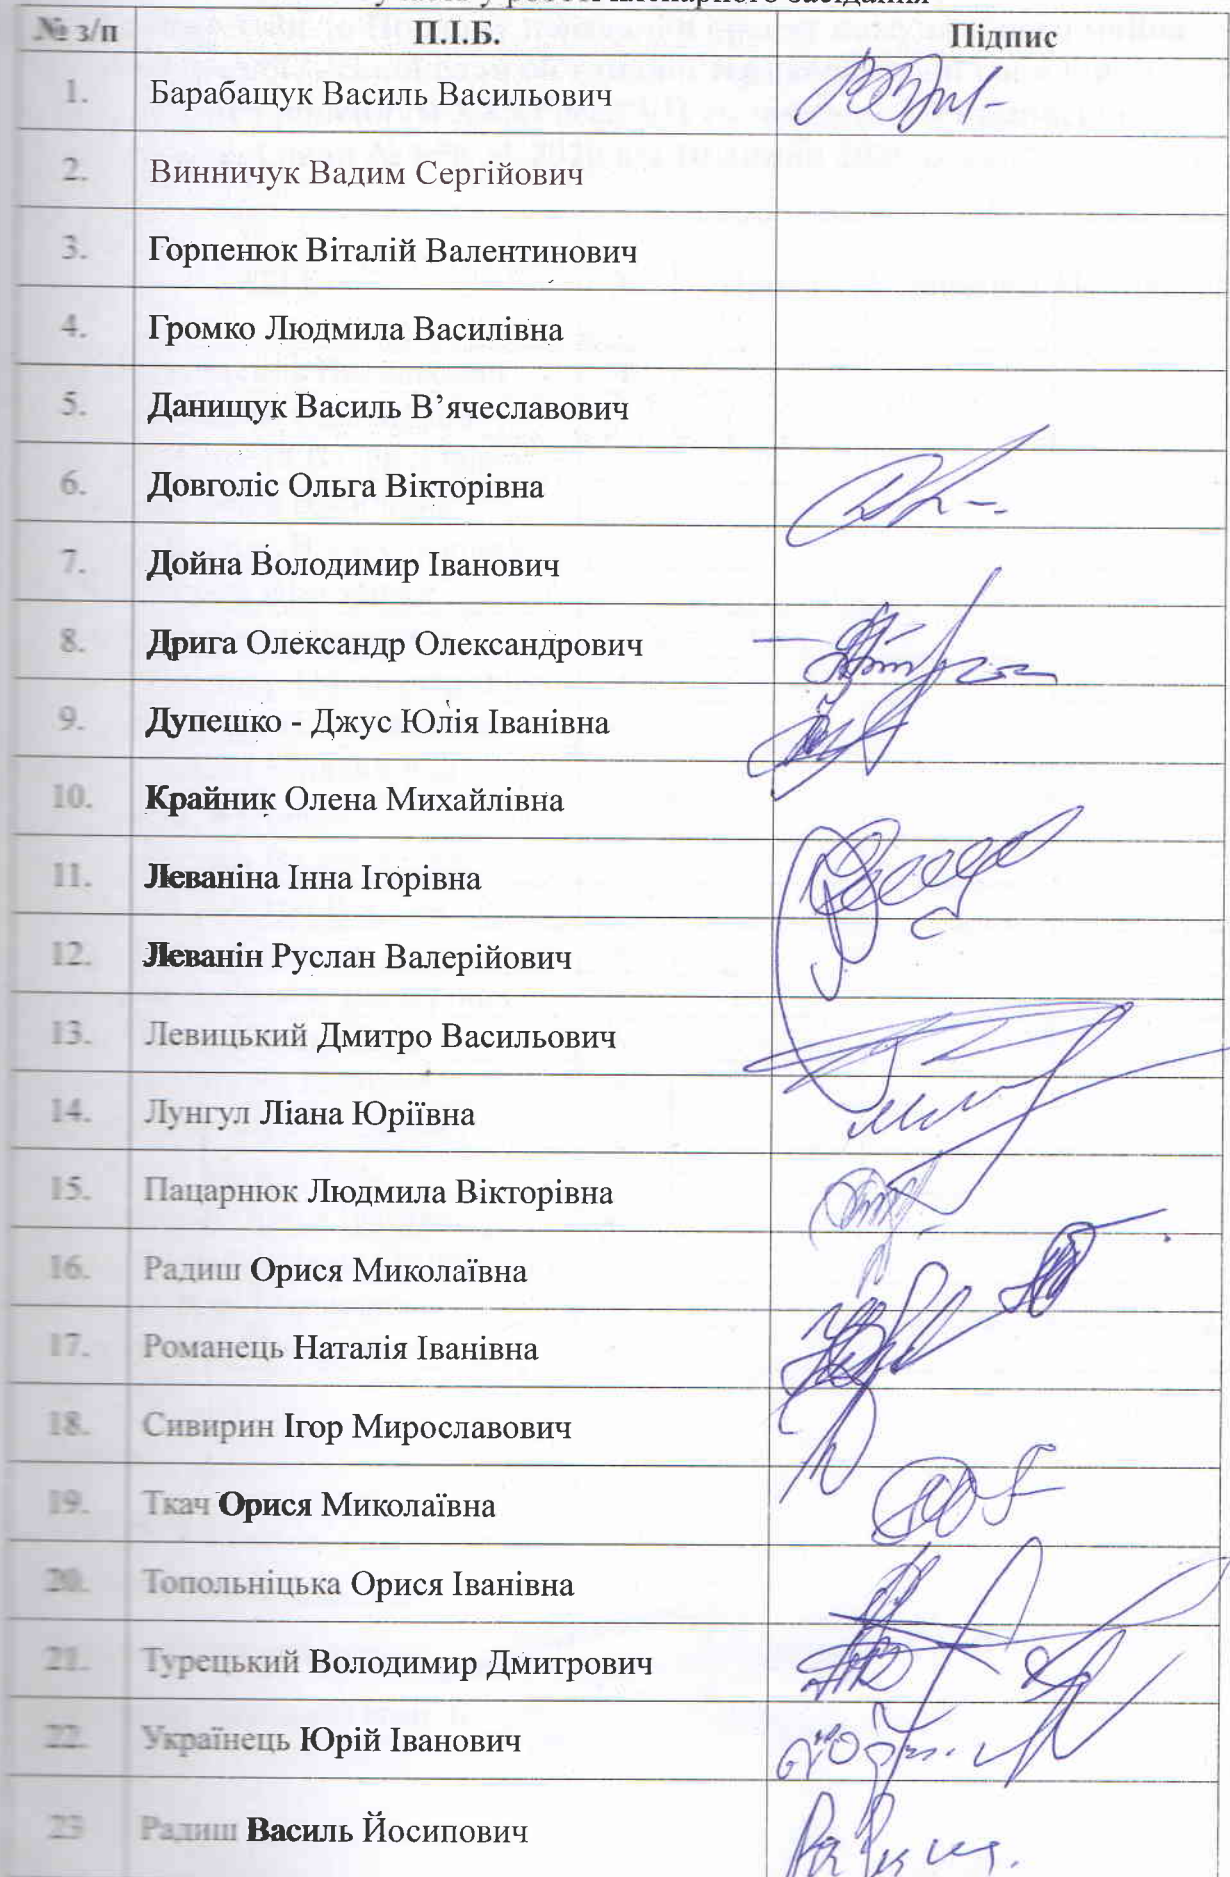 у роботі пленарного засідання
№ з/п П.І.Б. Підпис
1. Барабащук Василь Васильович
2. Винничук Вадим Сергійович
3. Горпенюк Віталій Валентинович
4. Громко Людмила Василівна
5. Данищук Василь В’ячеславович
6. Довголіс Ольга Вікторівна
7. Дойна Володимир Іванович
8. Дрига Олександр Олександрович
9. Дупешко - Джус Юлія Іванівна
10. Крайник Олена Михайлівна
11. Леваніна Інна Ігорівна
12. Леванін Руслан Валерійович
13. Левицький Дмитро Васильович
14. Лунгул Ліана Юріївна
15. Пацарнюк Людмила Вікторівна
16. Радиш Орися Миколаївна
17. Романець Наталія Іванівна
18. Сивирин Ігор Мирославович
19. Ткач Орися Миколаївна
20. Топольніцька Орися Іванівна
21. Турецький Володимир Дмитрович
22. Українець Юрій Іванович
23 Радиш Василь Йосипович